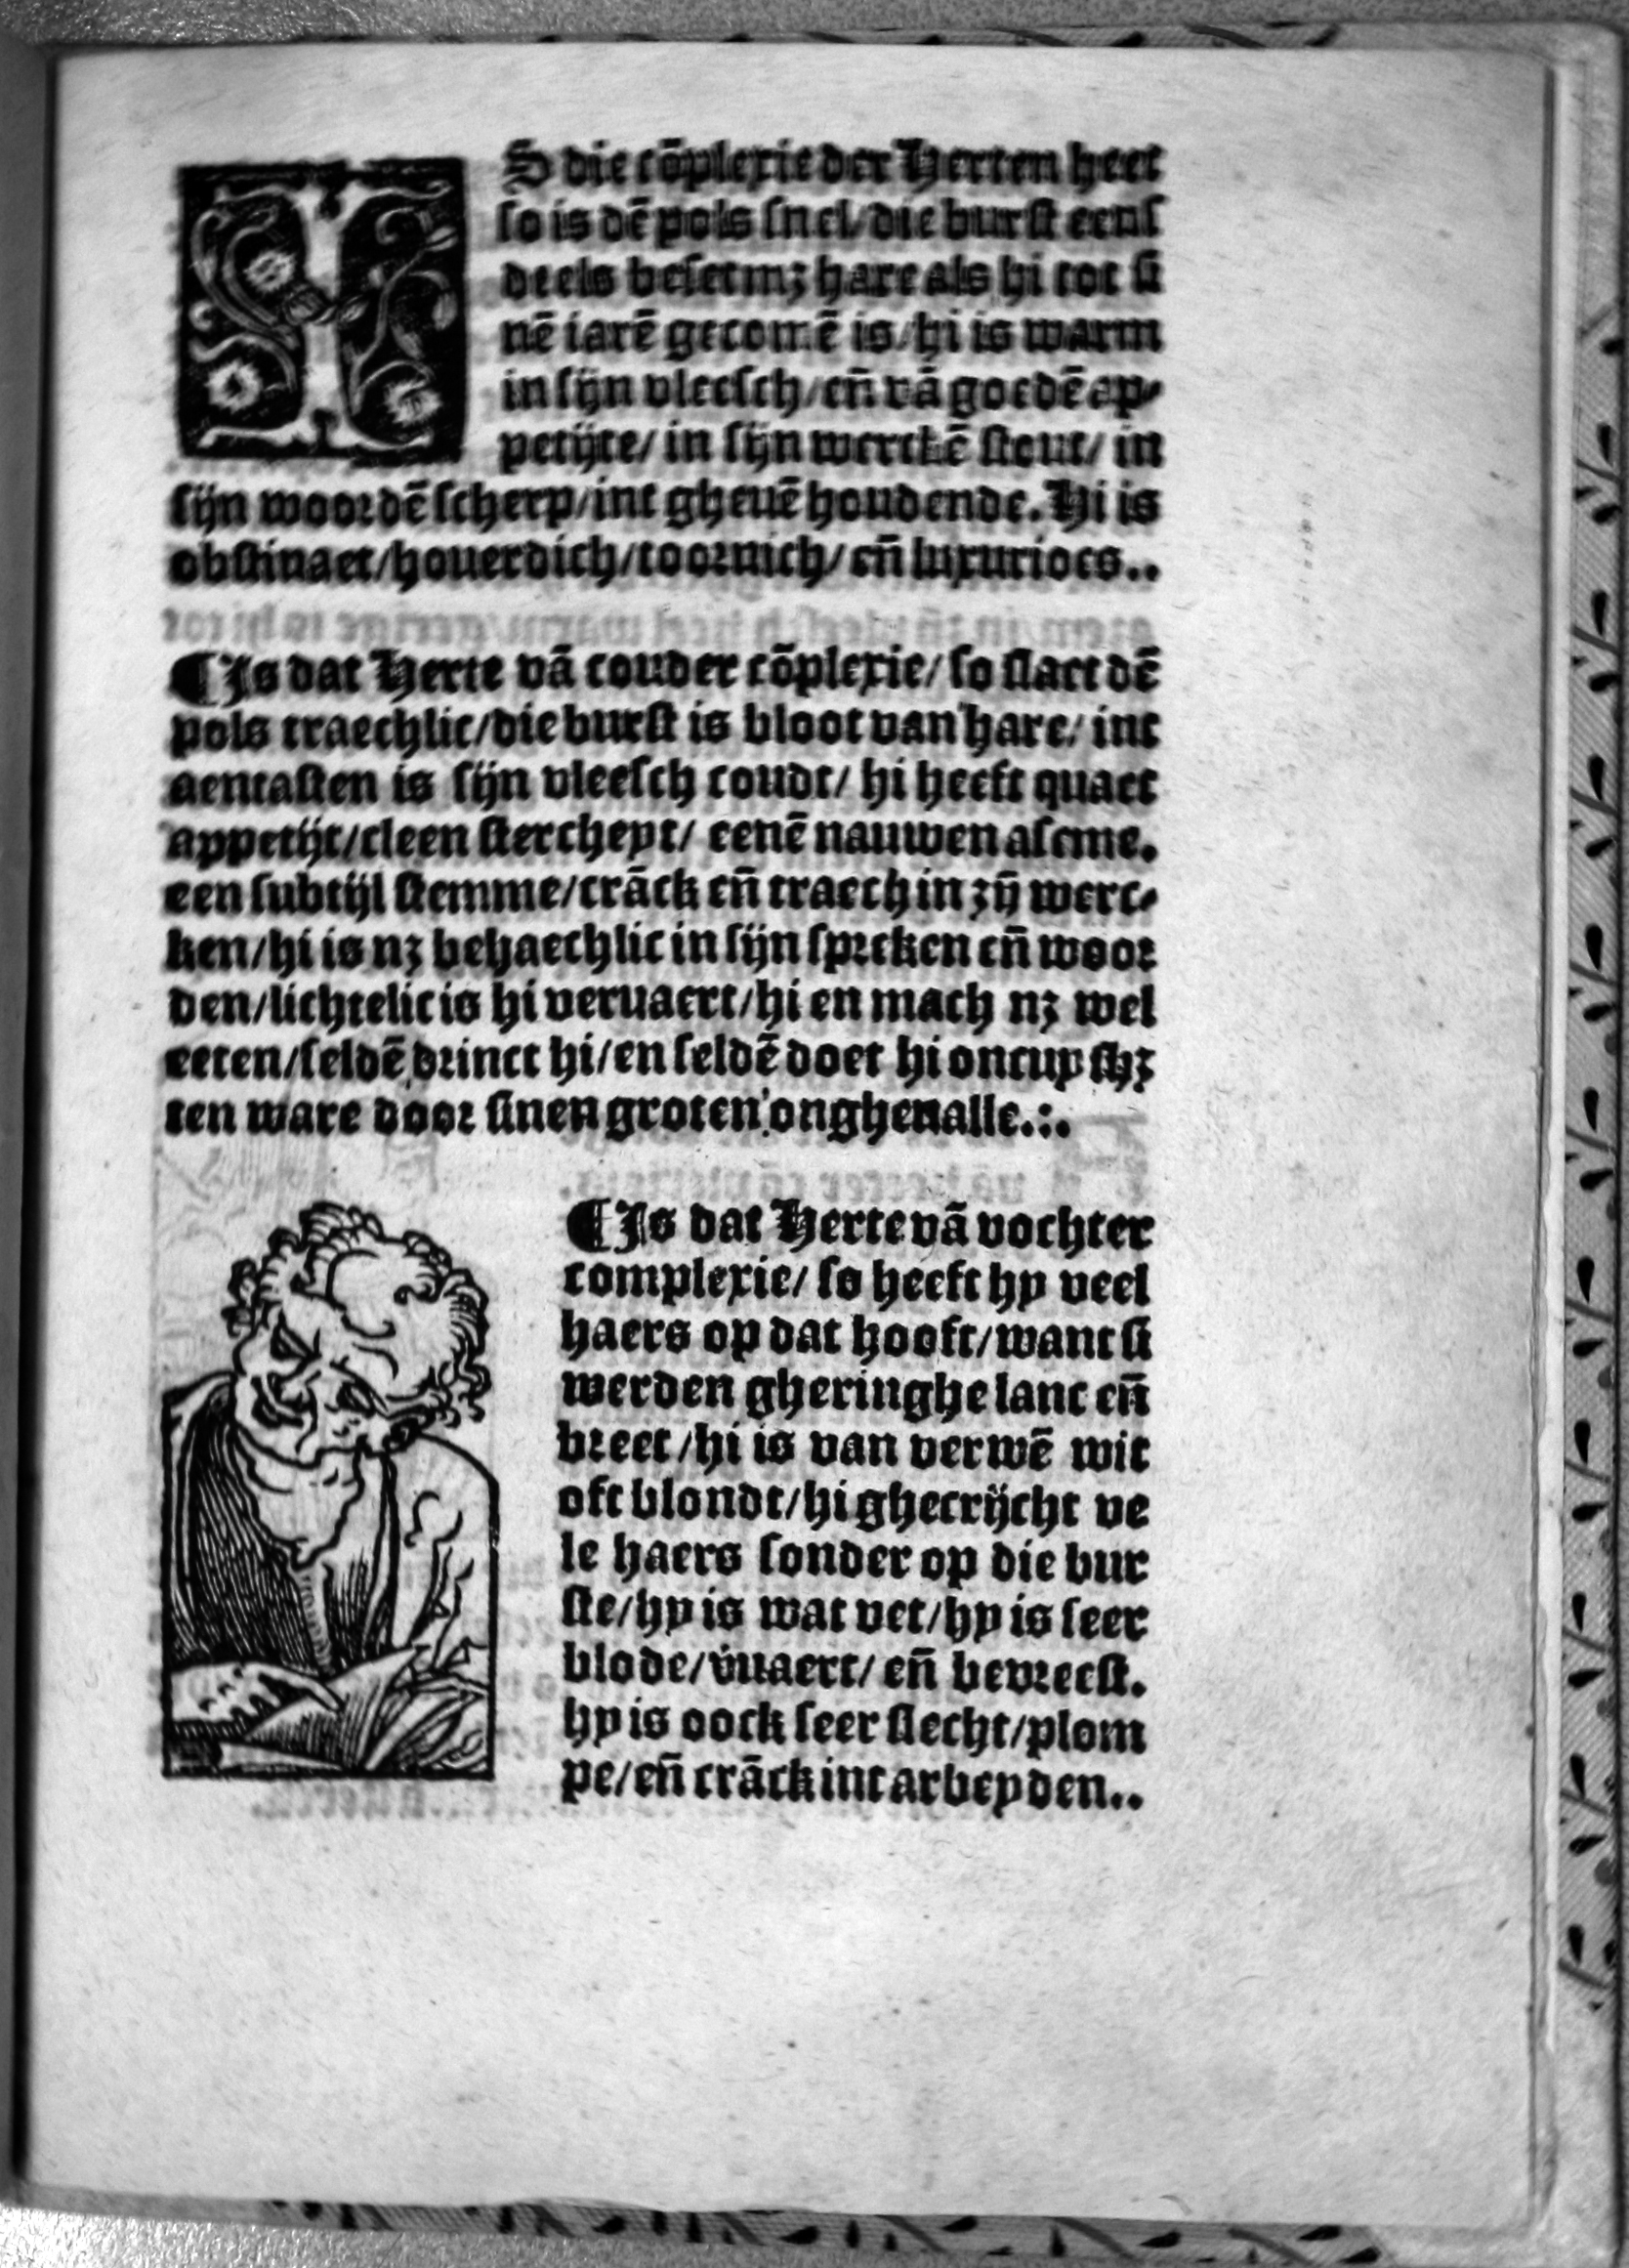 IS die cõplexie der Herten heet
so is dẽ pols snel/die burst eens
deels beset mʒ hare als hi tot si
nẽ iarẽ gecomẽ is/hi is warm
in sijn vleesch/eñ vã goedẽ ap⸗
petijte/in sijn werckẽ stout/in
sijn woordẽ scherp/int gheuẽ houdende. Hi is
obstinaet/houerdich/toornich/eñ luxurioes..
¶Is dat Herte vã couder cõplexie/so slaet dẽ
pols traechlic/die burst is bloot van hare/int
aentasten is sijn vleesch coudt/hi heeft quaet
appetijt/cleen stercheyt/eenẽ nauwen aseme.
een subtijl stemme/crãck eñ traech in zij̃ werc⸗
ken/hi is nʒ behaechlic in sijn spreken eñ woor
den/lichtelic is hi veruaert/hi en mach nʒ wel
eeten/seldẽ drinct hi/en seldẽ doet hi oncuyshʒ
ten ware door sinen groten onghenalle.:.
¶Is dat Herte vã vochter
complexie/so heeft hy veel
haers op dat hooft/want si
werden gheringhe lanc eñ
breet/hi is van verwẽ wit
oft blondt/hi ghecrijcht ve
le haers sonder op die bur
ste/hy is wat vet/hy is seer
blode/v̇uaert/eñ bevreest.
hy is oock seer slecht/plom
pe/eñ crãck int arbeyden..